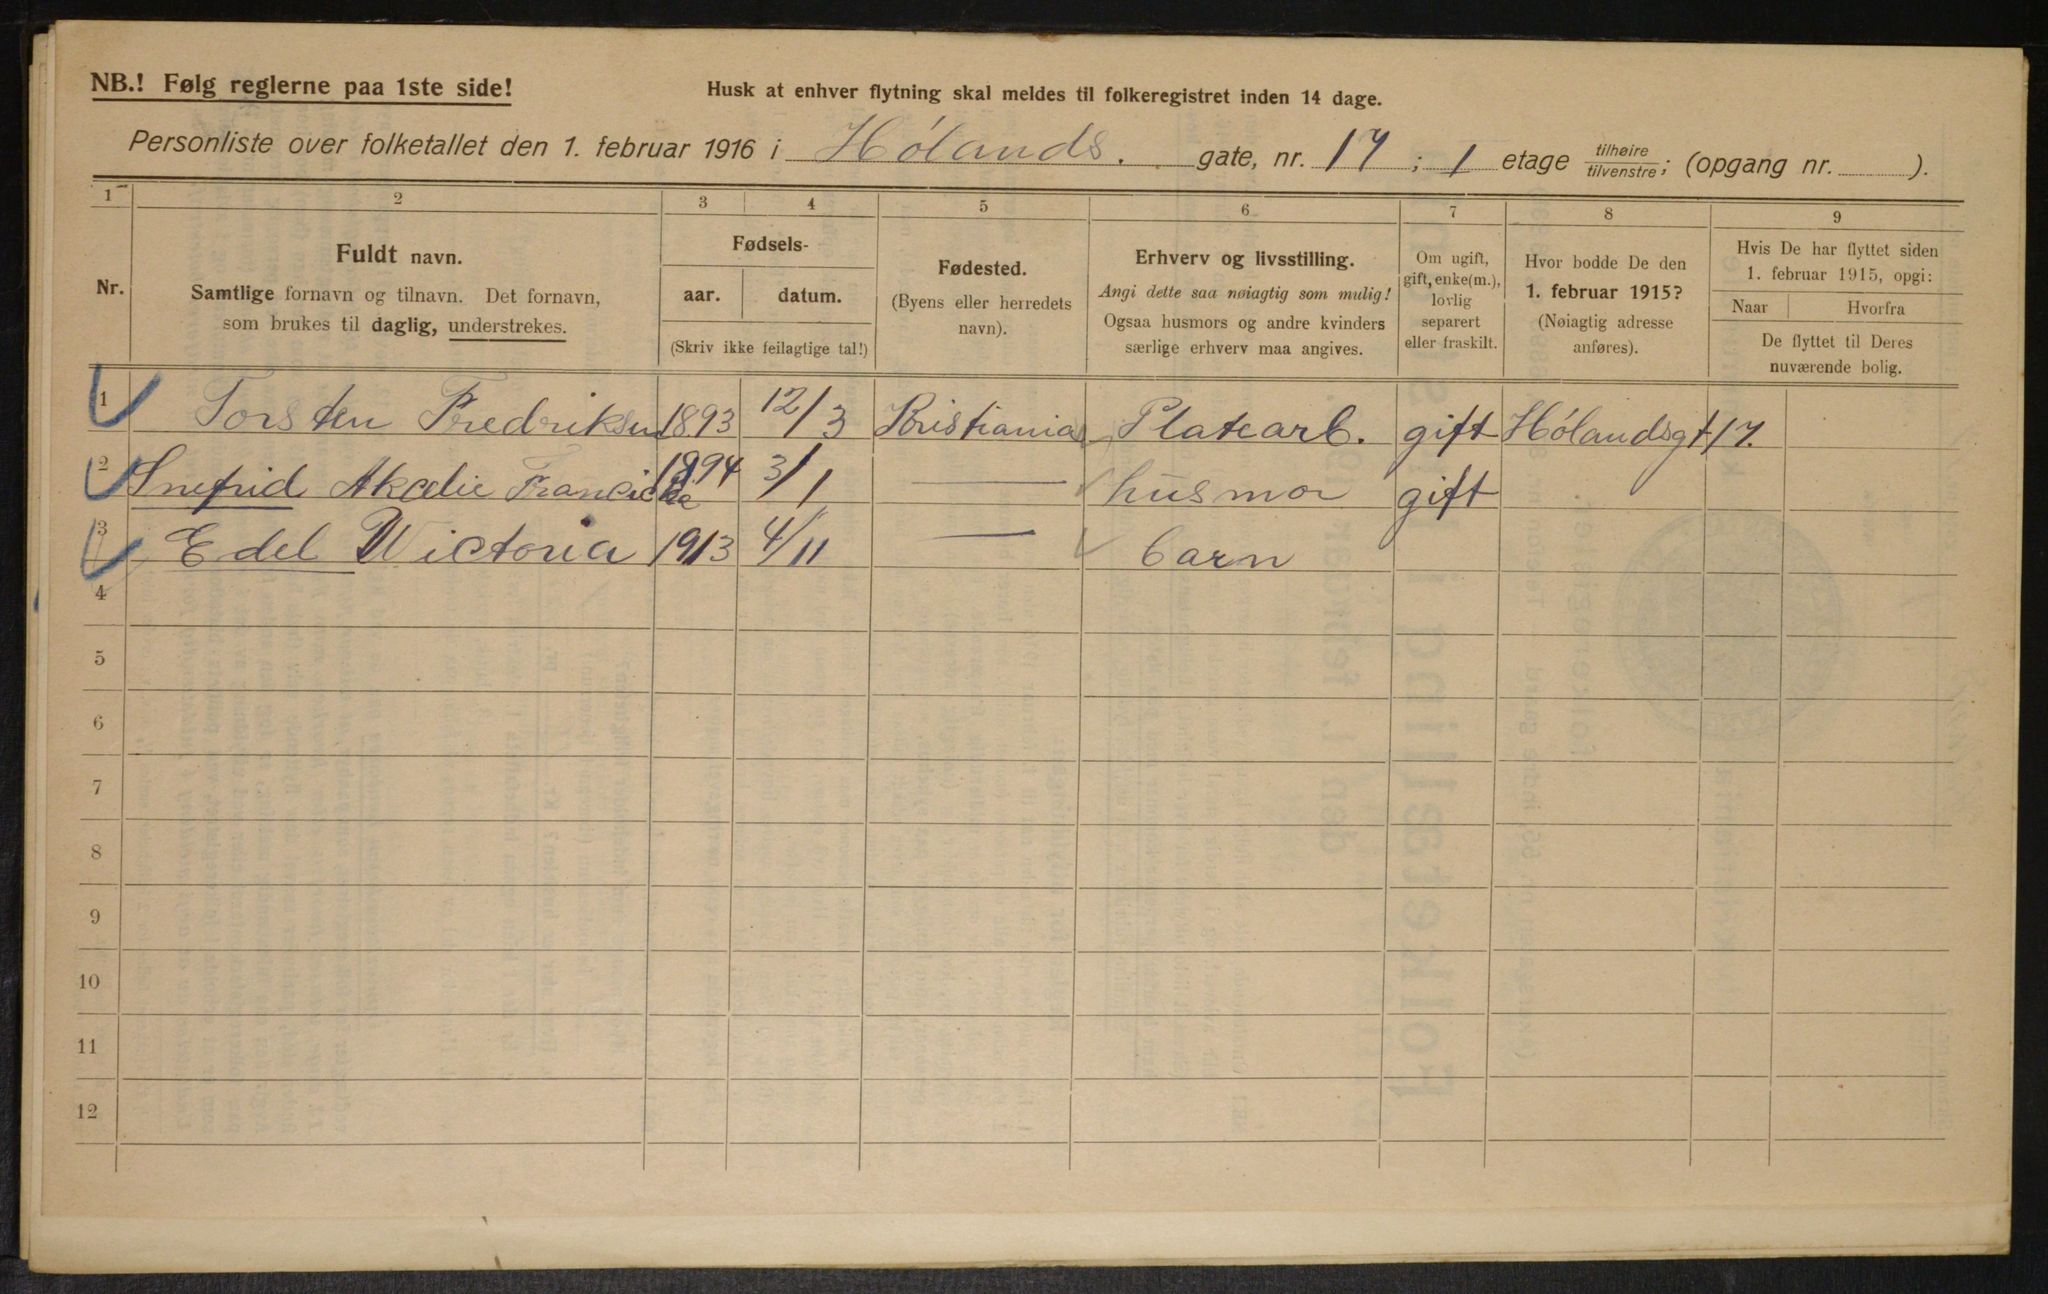 NB.! Følg reglerne paa 1ste side!
Husk at enhver flytning skal meldes til folkeregistret inden 14 dage.
Personliste over folketallet den 1. februar 1916 i Hólands. gate, nr. 17; 1 etage tilhøire/tilvenstre; (opgang nr. ).
1 2 3 4 5 6 7 8 9
Nr.
Fuldt navn.
Samtlige fornavn og tilnavn. Det fornavn,
som brukes til daglig, understrekes.
Fødsels-
aar. datum.
(Skriv ikke feilagtige tal!)
Fødested.
(Byens eller herredets
navn).
Erhverv og livsstilling.
Angi dette saa nøiagtig som mulig!
Ogsaa husmors og andre kvinders
særlige erhverv maa angives.
Om ugift,
gift, enke(m.),
lovlig
separert
eller fraskilt.
Hvor bodde De den
1. februar 1915?
(Nøiagtig adresse
anføres).
Hvis De har flyttet siden
1. februar 1915, opgi:
Naar Hvorfra
De flyttet til Deres
nuværende bolig.
1 Torsten Fredriksen 1893 12/3 Kristiania Platearb. gift Hólandsgt 17.
2 Snefrid Akalie Francicka 1894 3/1 — husmor gift
3 Edel Wictoria 1913 4/11 — barn
4
5
6
7
8
9
10
11
12